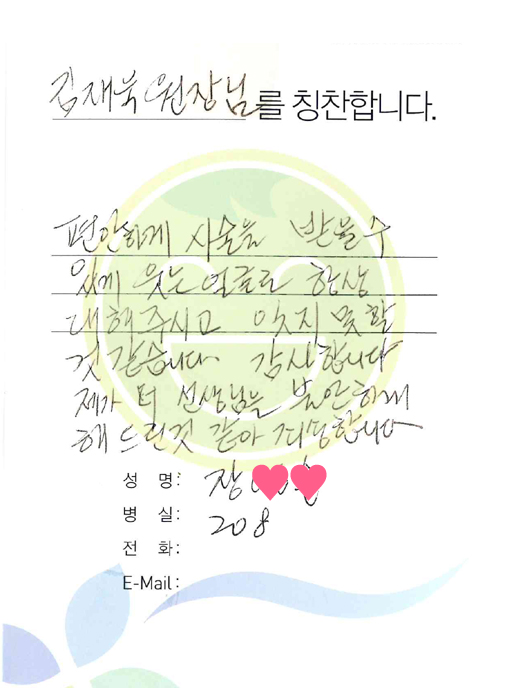 김재욱 원장님를 칭찬합니다.
편안하게 시술을 받을수
있게 웃는 얼굴로 항상
대해주시고 잊지 못할
것 같습니다. 감사합니다
제가 더 선생님을 불안하게
해 드린것 같아 죄송합니다
성 명: 장
병 실: 208
전 화:
E-Mail: